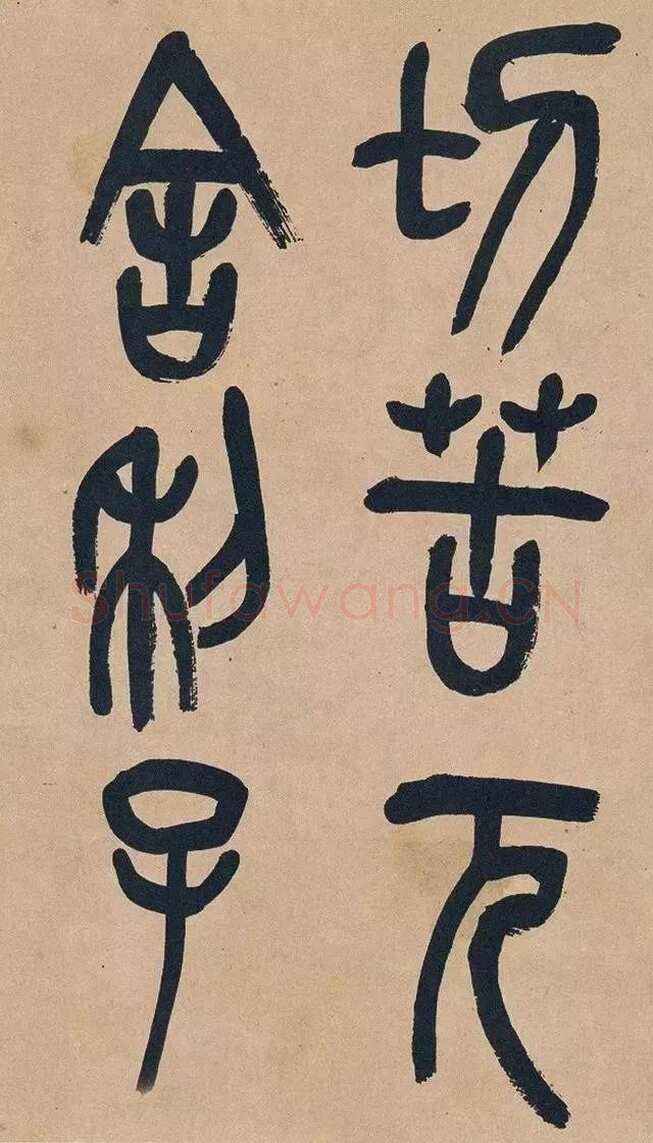 切苦厄
舍利子
Shufawang.CN